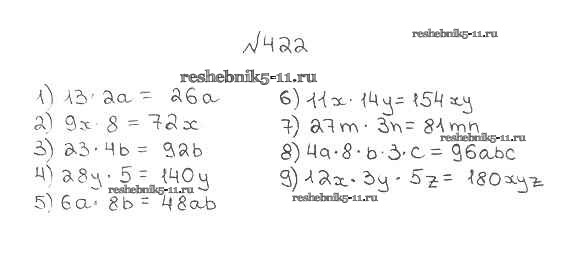 №422
reshebnik5-11.ru
reshebnik5-11.ru
1) 13 · 2a = 26a
2) 9x · 8 = 72x
3) 23 · 4b = 92b
4) 28y · 5 = 140y
reshebnik5-11.ru
5) 6a · 8b = 48ab
6) 11x · 14y = 154xy
7) 27m · 3n = 81mn
reshebnik5-11.ru
8) 4a · 8 · b · 3 · c = 96abc
9) 12x · 3y · 5z = 180xyz
reshebnik5-11.ru